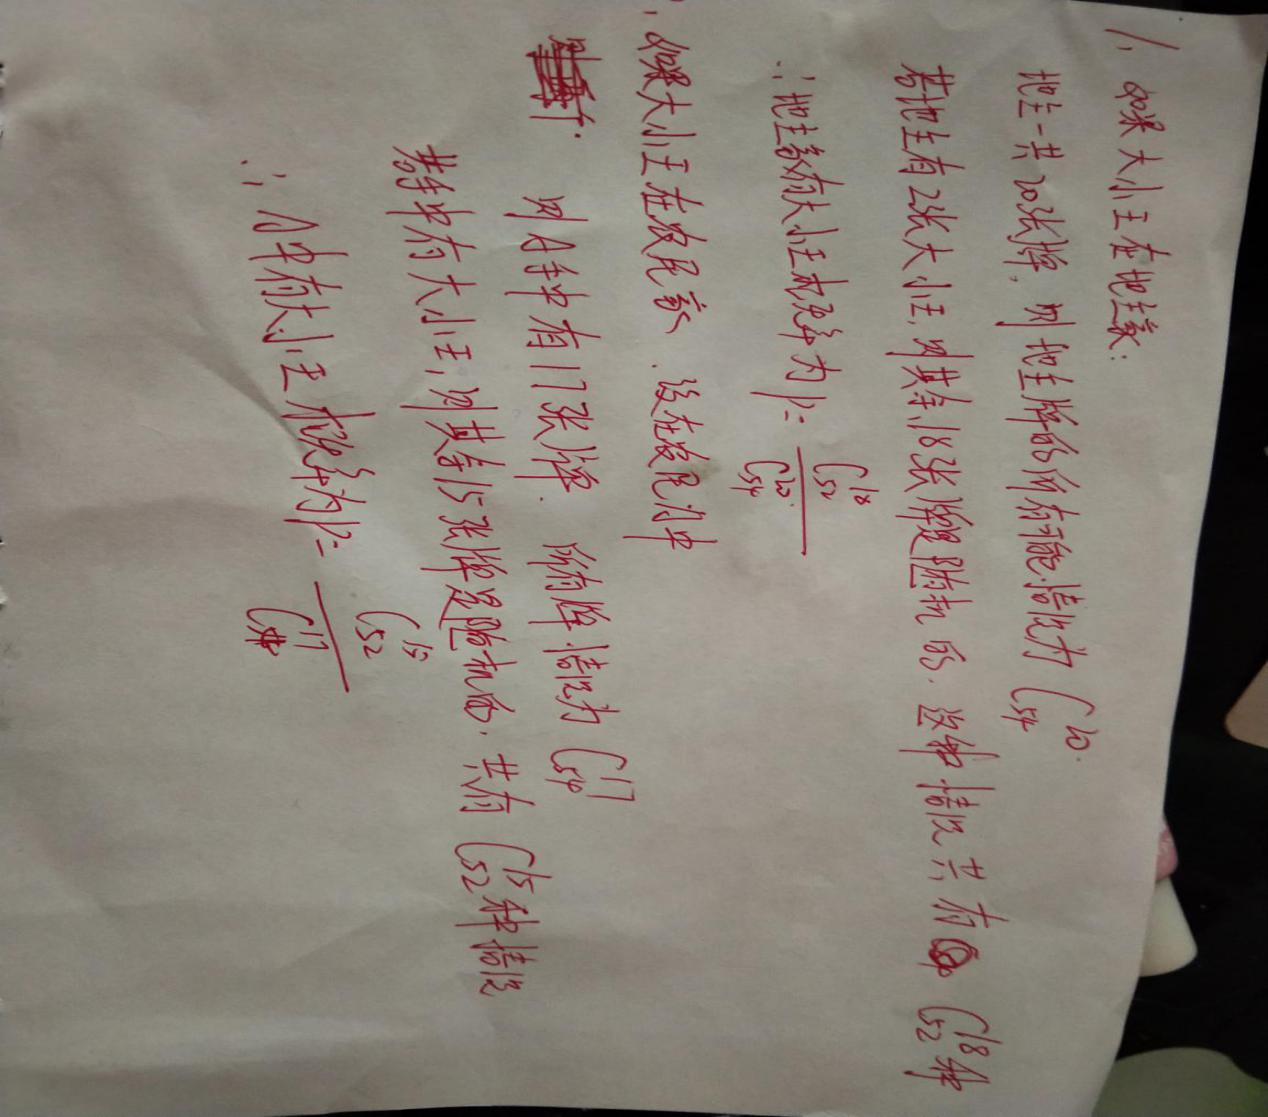 1, 如果大小王在地主家:
地主一共20张牌, 则地主牌的所有可能情况为 C₅₄²⁰.
若地主有2张大小王, 则其余18张牌是随机的. 这种情况共有 C₅₂¹⁸种
∴地主家有大小王概率为P= C₅₂¹⁸/C₅₄²⁰.
, 如果大小王在农民家. 设在农民A中
则A手中有17张牌. 所有牌情况为 C₅₄¹⁷
若手中有大小王, 则其余15张牌是随机的, 共有 C₅₂¹⁵种情况
∴A中有大小王概率为P= C₅₂¹⁵/C₅₄¹⁷